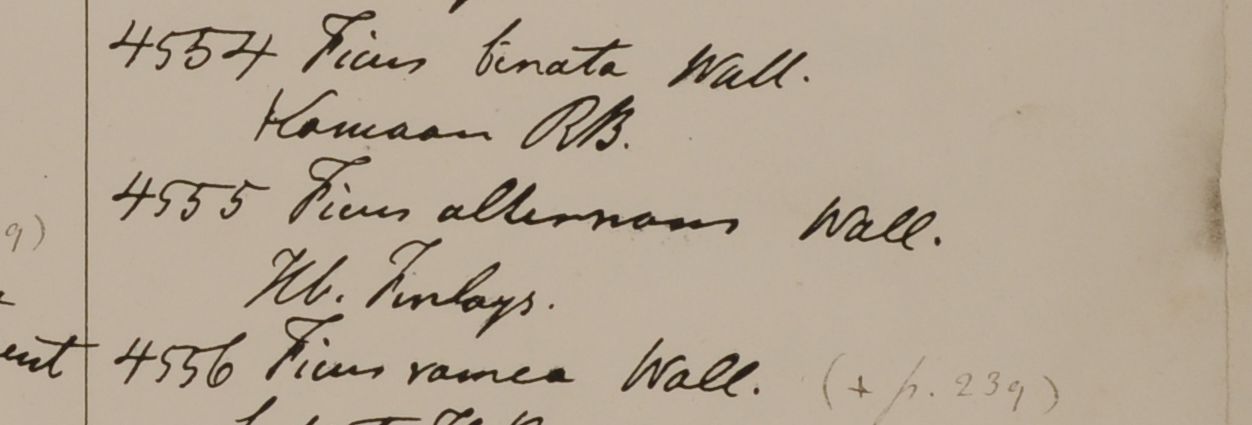 4554 Ficus binata Wall.
Kamaon RB.
4555 Ficus alternans Wall.
Hb. Finlays.
4556 Ficus ramea Wall. (+ p. 239)
9)
ent